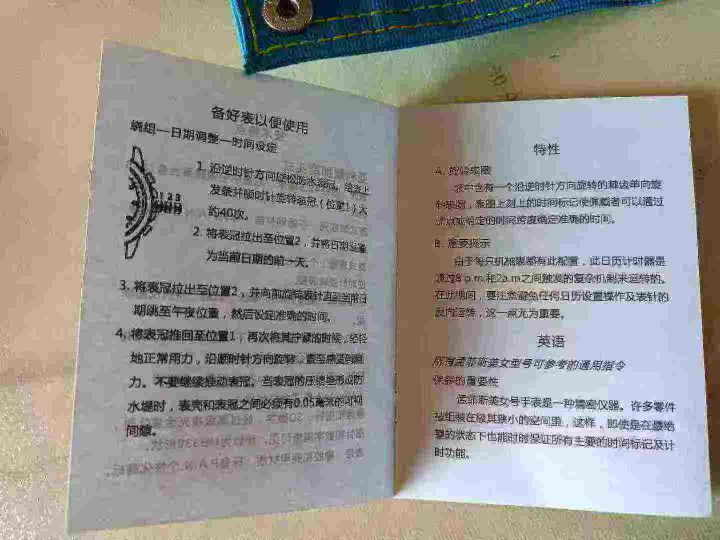 备好表以便使用
绕组—日期调整—时间设定
1. 沿逆时针方向旋松防水表冠。给表上
发条并顺时针旋转表冠（位置1）大
约40次。
2. 将表冠拉出至位置2，并将日期设置
为当前日期的前一天。
1 2 3
3. 将表冠拉出至位置2，并向前旋转表针直至当前日
期跳至午夜位置，然后设定准确的时间。
4. 将表冠推回至位置1，再次将其拧紧的时候，轻轻
地正常用力，沿顺时针方向旋转，直至感觉到阻
力。不要继续推动表冠。当表冠的压缩垫形成防
水堤时，表壳和表冠之间必须有0.05毫米的可视
间隙。
特性
A. 旋转表圈
这中含有一个沿逆时针方向旋转的棘齿单向旋
转表圈，表圈上刻上的时间标记使佩戴者可以通过
给定的时间跨度确定准确的时间。
B. 重要提示
由于每只机械表都有此配置，此日历计时器是
通过8 p.m.和2a.m之间触发的复杂机制来运转的。
在此期间，要注意避免任何日历设置操作及表针的
反向运转，这一点尤为重要。
英语
所有孟菲斯美女型号可参考的通用指令
保养的重要性
孟菲斯美女号手表是一种精密仪器。许多零件
被组装在极其狭小的空间里，这样，即使是在最绝
望的状态下也能时时保证所有主要的时间标记及计
时功能。